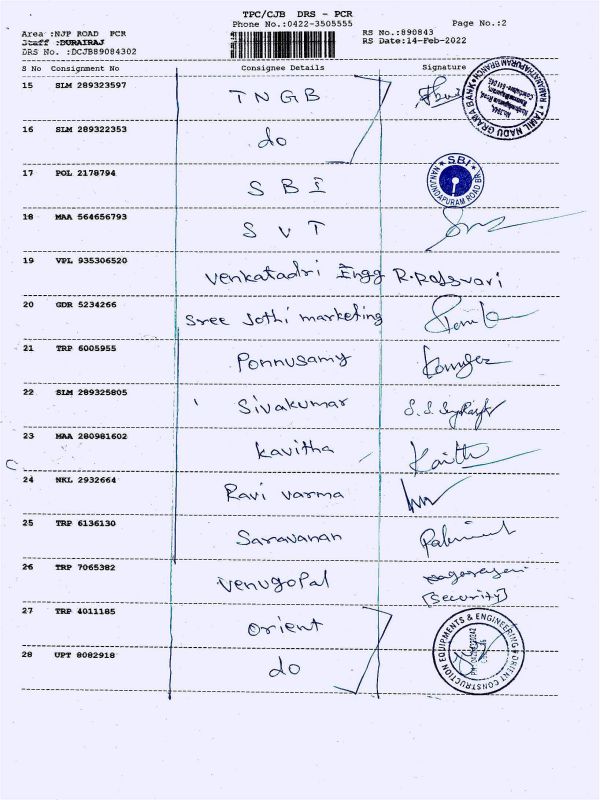 TPC/CJB DRS - PCR
Phone No.:0422-3505555 Page No.:2
Area :NJP ROAD PCR RS No.:890843
Staff :DURAIRAJ RS Date:14-Feb-2022
DRS No. :DCJB89084302
S No Consignment No Consignee Details Signature
15 SLM 289323597 TNGB
TAMIL NADU GRAMA BANK RAMANATHAPURAM BRANCH
16 SLM 289322353 do
17 POL 2178794 SBI
SBI NANJUNDAPURAM ROAD BR.
18 MAA 564656793 SVT
19 VPL 935306520 Venkatadri Engg
20 GDR 5234266 Sree Jothi marketing
21 TRP 6005955 Ponnusamy
22 SLM 289325805 Sivakumar
23 MAA 280981602 Kavitha
24 NKL 2932664 Ravi varma
25 TRP 6136130 Saravanan
26 TRP 7065382 Venugopal
[Security]
27 TRP 4011185 Orient
ORIENT CONSTRUCTION EQUIPMENTS & ENGINEERING
28 UPT 8082918 do